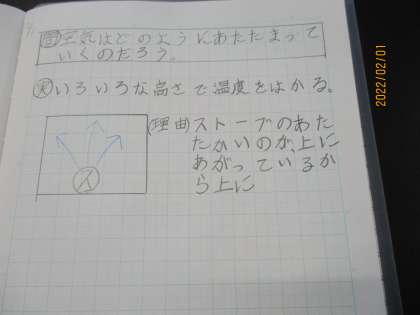 問 空気はどのようにあたたまって
いくのだろう。
実 いろいろな高さで温度をはかる。
(理由)ストーブのあた
たかいのが、上に
あがっているか
ら上に
ス
2022/02/01